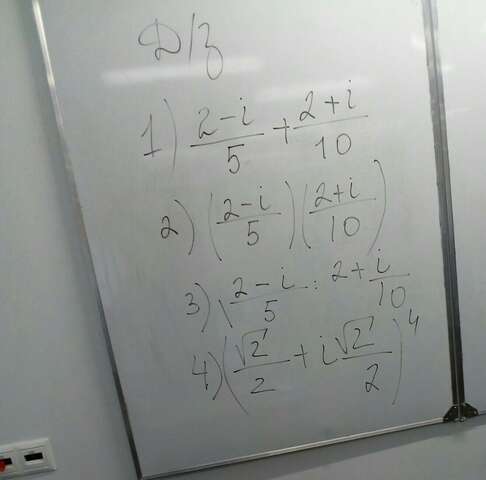 Д/з
1) (2-i)/5 + (2+i)/10
2) ((2-i)/5)((2+i)/10)
3) (2-i)/5 : (2+i)/10
4) (√2/2 + i√2/2)^4